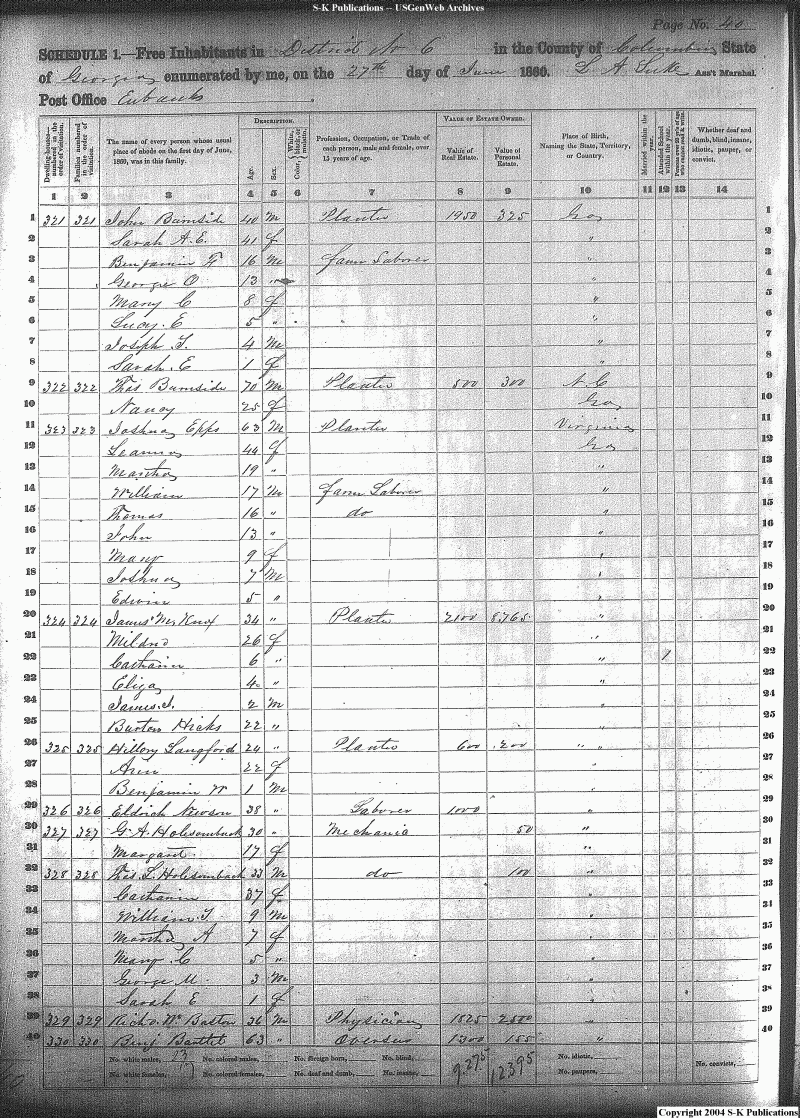 S-K Publications -- USGenWeb Archives
Page No. 40
SCHEDULE 1.—Free Inhabitants in District No 6 in the County of Columbia State
of Georgia enumerated by me, on the 27th day of June 1860. L A Luke Ass't Marshal.
Post Office Eubanks
Dwelling-houses—numbered in the order of visitation.
Families numbered in the order of visitation.
The name of every person whose usual place of abode on the first day of June, 1860, was in this family.
DESCRIPTION.
Age.
Sex.
Color, White, black, or mulatto.
Profession, Occupation, or Trade of each person, male and female, over 15 years of age.
VALUE OF ESTATE OWNED.
Value of Real Estate.
Value of Personal Estate.
Place of Birth, Naming the State, Territory, or Country.
Married within the year.
Attended School within the year.
Persons over 20 y'rs of age who cannot read & write.
Whether deaf and dumb, blind, insane, idiotic, pauper, or convict.
1 2 3 4 5 6 7 8 9 10 11 12 13 14
1 321 321 John Burnside 40 M Planter 1950 325 Ga 1
2 Sarah A. E. 41 f " 2
3 Benjamin F 16 M farm Laborer " 3
4 George O 13 " " 4
5 Mary C 8 f " 5
6 Lucy. E 5 " " " 6
7 Joseph T. 4 M " 7
8 Sarah. E 1 f " 8
9 322 322 Thos Burnside 70 M Planter 500 300 N. C 9
10 Nancy 25 f Ga 10
11 323 323 Joshua Epps 63 M Planter Virginia 11
12 Leanna 44 f Ga 12
13 Martha 19 " " 13
14 William 17 M farm Laborer " 14
15 Thomas 16 " do " 15
16 John 13 " " 16
17 Mary 9 f " 17
18 Joshua 7 M " 18
19 Edwin 5 " " 19
20 324 324 James McKnox 34 " Planter 2100 8765 " 20
21 Mildred 26 f " 21
22 Catharin 6 " " 1 22
23 Eliza 4 " " 23
24 James. J. 2 M 24
25 Burton Hicks 22 " 25
26 325 325 Hillory Langford 24 " Planter 600 200 " " 26
27 Ann 22 f " 27
28 Benjamin W 1 M " 28
29 326 326 Eldrich Newson 38 " Laborer 1000 " 29
30 327 327 G. A. Holesomback 30 " Mechanic 50 " 30
31 Margaret 17 f " 31
32 328 328 Thos. L. Holesomback 33 M do 100 " 32
33 Catharin 37 f " 33
34 William T 9 M " 34
35 Martha A 7 f " 35
36 Mary C 5 " " 36
37 George M. 3 M " 37
38 Sarah E 1 f " 38
39 329 329 Richd. W. Batton 36 M Physician 1825 2500 " 39
40 330 330 Benj Bartlet 63 " Overseer 1300 155 " 40
No. white males, 23 No. colored males, No. foreign born, No. blind, 9,275 12395 No. idiotic,
No. white females, 17 No. colored females, No. deaf and dumb, No. insane, No. paupers, No. convicts,
Copyright 2004 S-K Publications